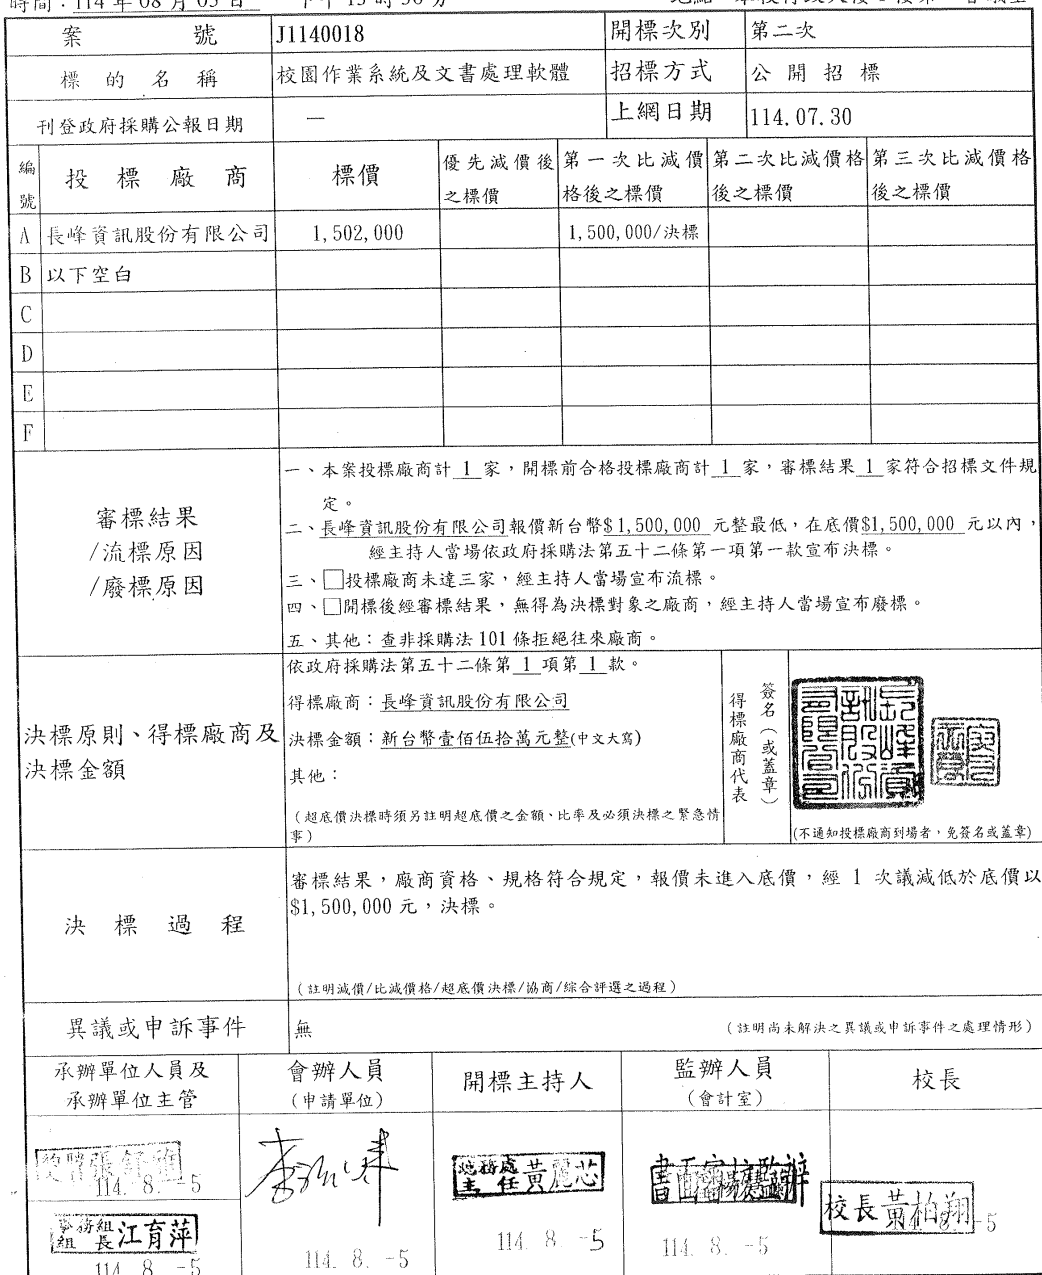 時間：114 年 08 月 05 日 下午 15 時 30 分
案 號 J1140018 開標次別 第二次
標 的 名 稱 校園作業系統及文書處理軟體 招標方式 公 開 招 標
刊登政府採購公報日期 — 上網日期 114.07.30
編號 投 標 廠 商 標價 優先減價後之標價 第一次比減價格後之標價 第二次比減價格後之標價 第三次比減價格後之標價
A 長峰資訊股份有限公司 1,502,000 1,500,000/決標
B 以下空白
C
D
E
F
審標結果
/流標原因
/廢標原因
一、本案投標廠商計 1 家，開標前合格投標廠商計 1 家，審標結果 1 家符合招標文件規
定。
二、長峰資訊股份有限公司報價新台幣$1,500,000 元整最低，在底價$1,500,000 元以內，
經主持人當場依政府採購法第五十二條第一項第一款宣布決標。
三、□投標廠商未達三家，經主持人當場宣布流標。
四、□開標後經審標結果，無得為決標對象之廠商，經主持人當場宣布廢標。
五、其他：查非採購法 101 條拒絕往來廠商。
決標原則、得標廠商及
決標金額
依政府採購法第五十二條第 1 項第 1 款。
得標廠商：長峰資訊股份有限公司
決標金額：新台幣壹佰伍拾萬元整(中文大寫)
其他：
（超底價決標時須另註明超底價之金額、比率及必須決標之緊急情
事）
得標廠商代表
簽名（或蓋章）
長峰資訊股份有限公司
(不通知投標廠商到場者，免簽名或蓋章)
決 標 過 程
審標結果，廠商資格、規格符合規定，報價未進入底價，經 1 次議減低於底價以
$1,500,000 元，決標。
（註明減價/比減價格/超底價決標/協商/綜合評選之過程）
異議或申訴事件 無 （註明尚未解決之異議或申訴事件之處理情形）
承辦單位人員及
承辦單位主管
會辦人員
（申請單位）
開標主持人
監辦人員
（會計室）
校長
114. 8. -5
事務組
組 長 江育萍
114. 8. -5
114. 8. -5
總務處
主 任 黃麗芯
114. 8. -5
書面審核監辦
114. 8. -5
校長 黃柏翔
114. 8. -5